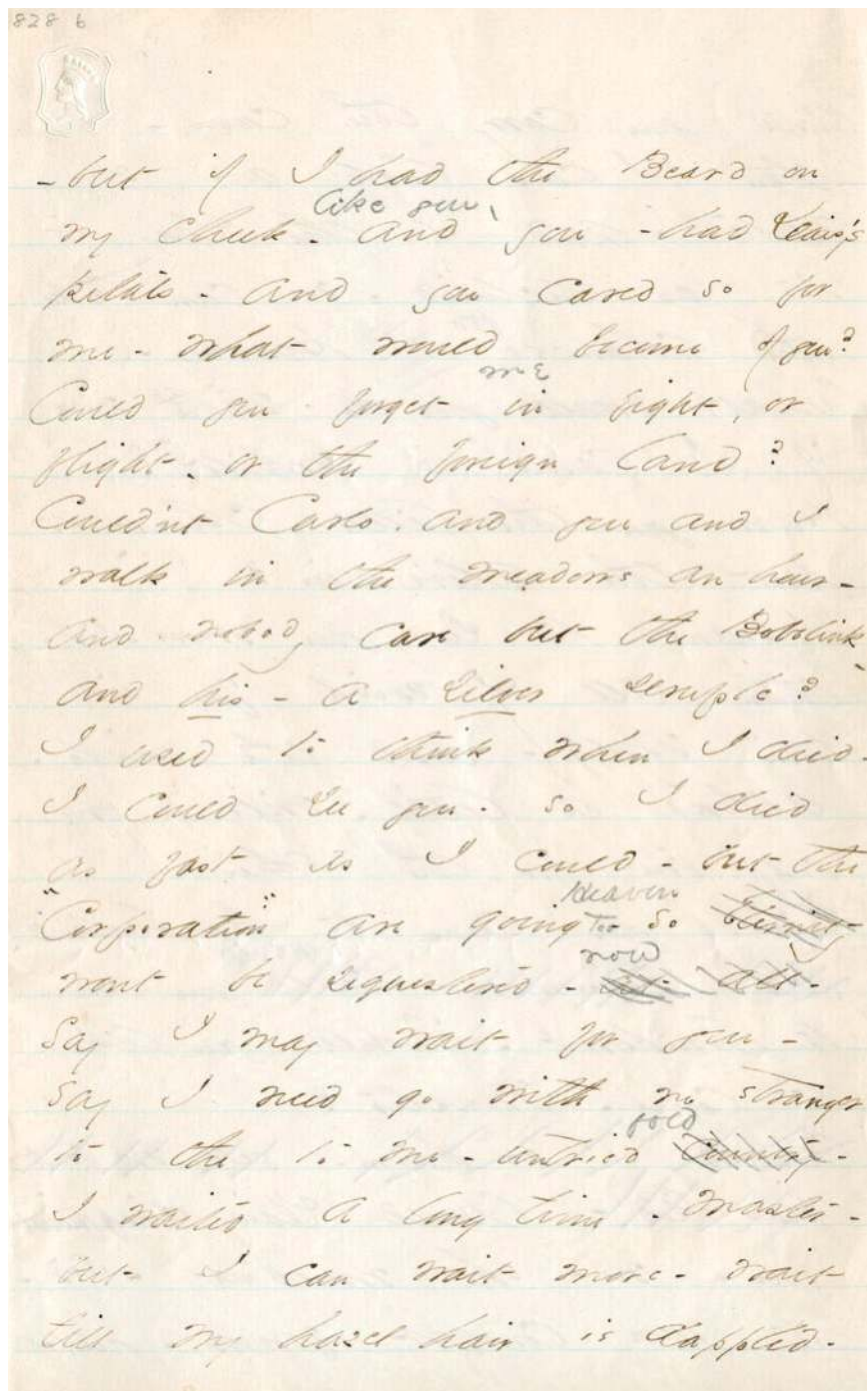 828 b
- but if I had the Beard on
like you,
my cheek - and you - had Daisy's
petals - and you cared so for
me - what would become of you?
me
Could you forget in fight, or
flight - or the foreign land?
Could'nt Carlo - and you and I
walk in the meadows an hour -
and nobody care but the Bobolink -
and his - a silver scruple?
I used to think when I died -
I could see you - so I died
as fast as I could - but the
Heaven
"Corporation" are going too so Eternity
now
wont be sequestered - at all -
Say I may wait for you -
Say I need go with no stranger
fold
to the to me - untried country -
I waited a long time - Master -
but I can wait more - wait
till my hazel hair is dappled -